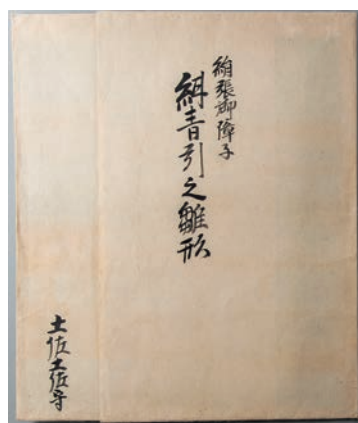 絹張御障子
紺青引之雛形
土佐土佐守